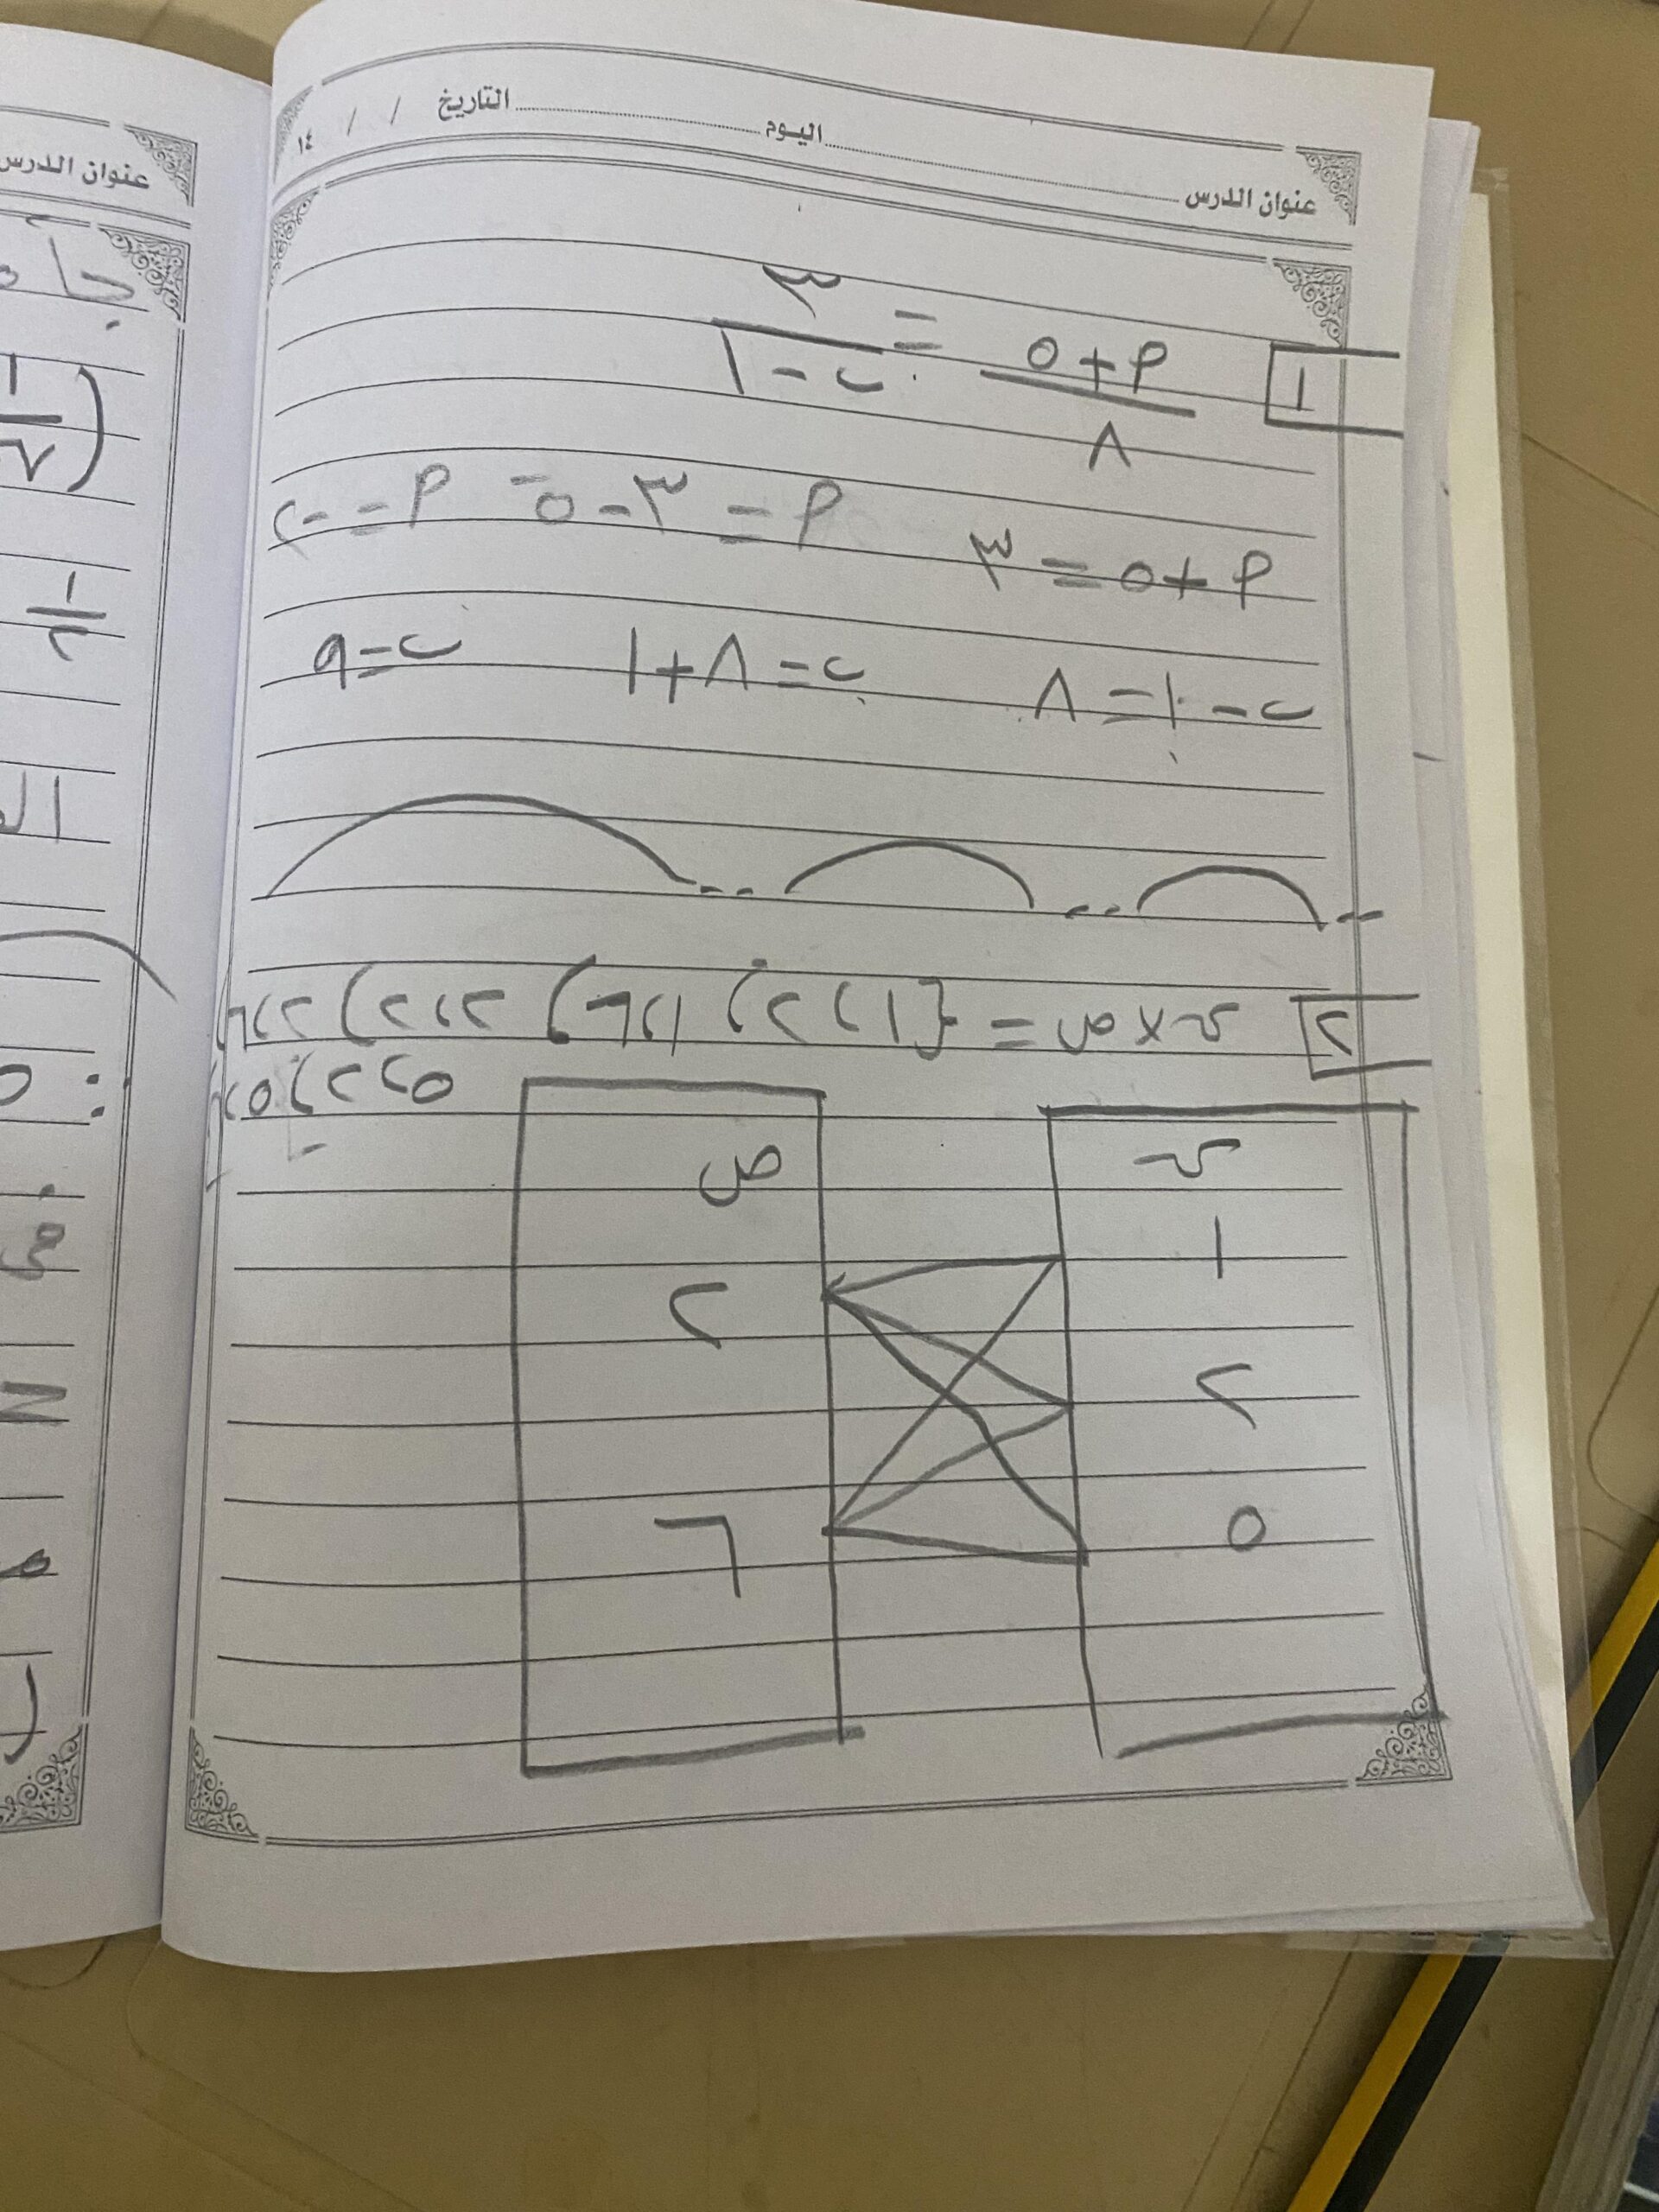 اليوم التاريخ / / ١٤
عنوان الدرس
١ (أ + ٥)/٨ = ٣/(ب - ١)
أ + ٥ = ٣ أ = ٣ - ٥ أ = -٢
ب - ١ = ٨ ب = ٨ + ١ ب = ٩
٢ س × ص = {(١،٢) (١،٦) (٢،٢) (٢،٦
٥،٢) (٥،
س ص
١
٢
٢
٥ ٦
عنوان الدرس
١
٧
١
٢